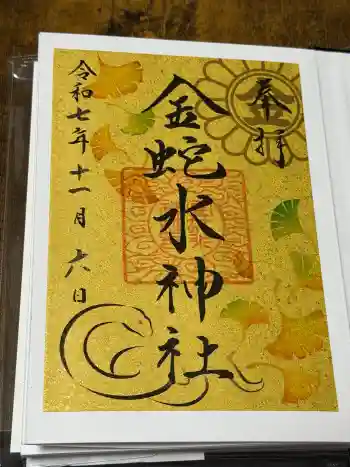 奉拝
金蛇水神社
令和七年十一月六日